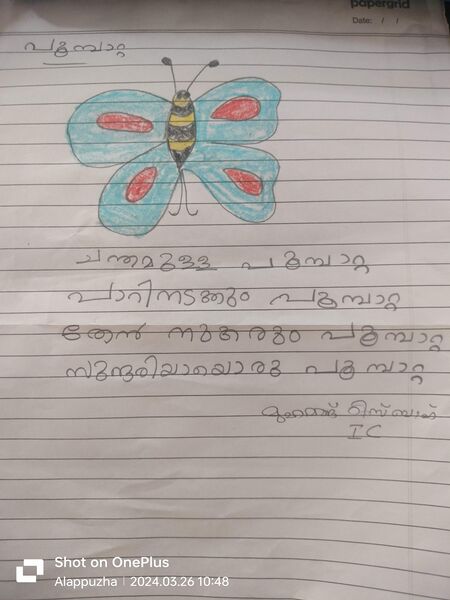 papergrid
Date: / /
പൂമ്പാറ്റ
ചന്തമുള്ള പൂമ്പാറ്റ
പാറിനടക്കും പൂമ്പാറ്റ
തേൻ നുകരും പൂമ്പാറ്റ
സുന്ദരിയായൊരു പൂമ്പാറ്റ
I C
Shot on OnePlus
Alappuzha | 2024.03.26 10:48